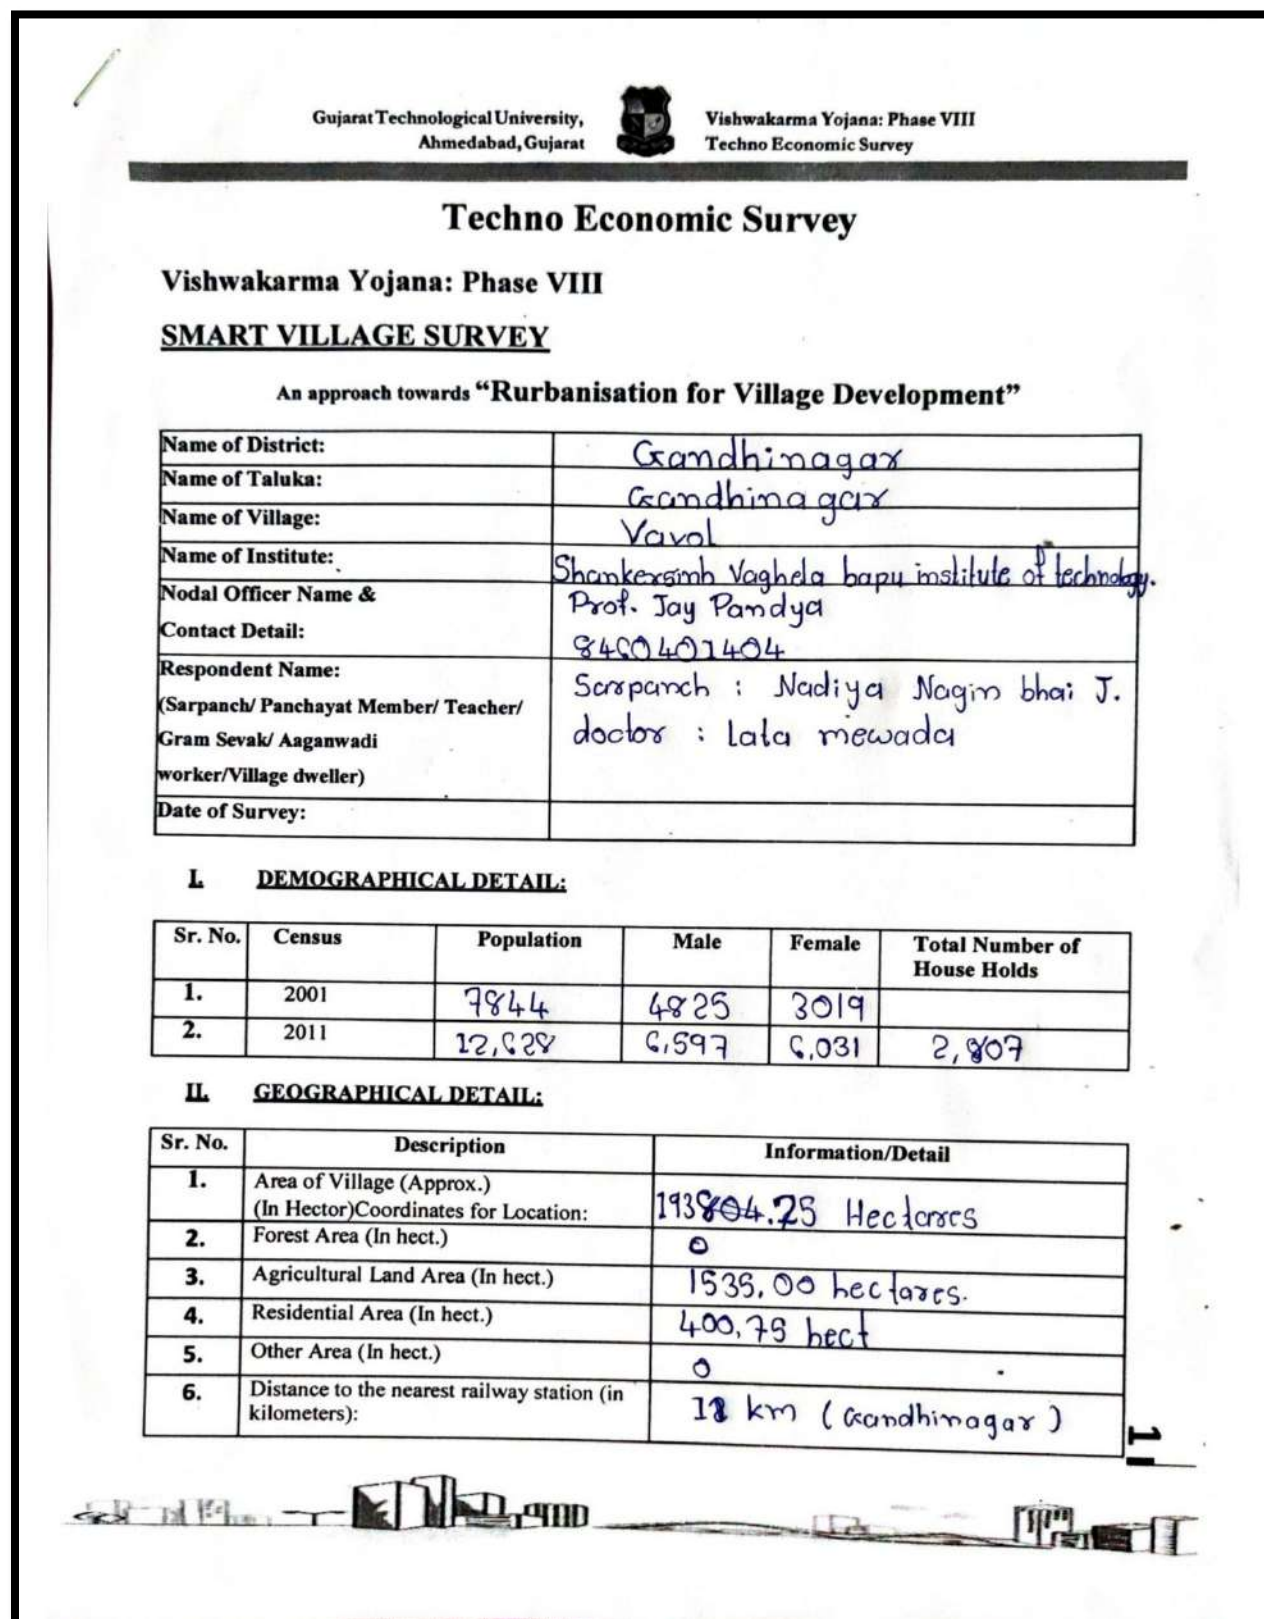 Gujarat Technological University,
Ahmedabad, Gujarat
Vishwakarma Yojana: Phase VIII
Techno Economic Survey
Techno Economic Survey
Vishwakarma Yojana: Phase VIII
SMART VILLAGE SURVEY
An approach towards “Rurbanisation for Village Development”
Name of District: Gandhinagar
Name of Taluka: Gandhinagar
Name of Village: Vavol
Name of Institute: Shankersinh Vaghela bapu institute of technology.
Nodal Officer Name & Prof. Jay Pandya
Contact Detail: 8460401404
Respondent Name: Sarpanch : Nadiya Nagin bhai J.
(Sarpanch/ Panchayat Member/ Teacher/ doctor : Lata mewada
Gram Sevak/ Aaganwadi
worker/Village dweller)
Date of Survey:
I. DEMOGRAPHICAL DETAIL:
Sr. No. Census Population Male Female Total Number of
House Holds
1. 2001 7844 4825 3019
2. 2011 12,628 6,597 6,031 2,807
II. GEOGRAPHICAL DETAIL:
Sr. No. Description Information/Detail
1. Area of Village (Approx.)
(In Hector)Coordinates for Location: Hectares
2. Forest Area (In hect.) 0
3. Agricultural Land Area (In hect.) 1535.00 hectares.
4. Residential Area (In hect.) 400.75 hect
5. Other Area (In hect.) 0
6. Distance to the nearest railway station (in
kilometers): km (Gandhinagar)
1